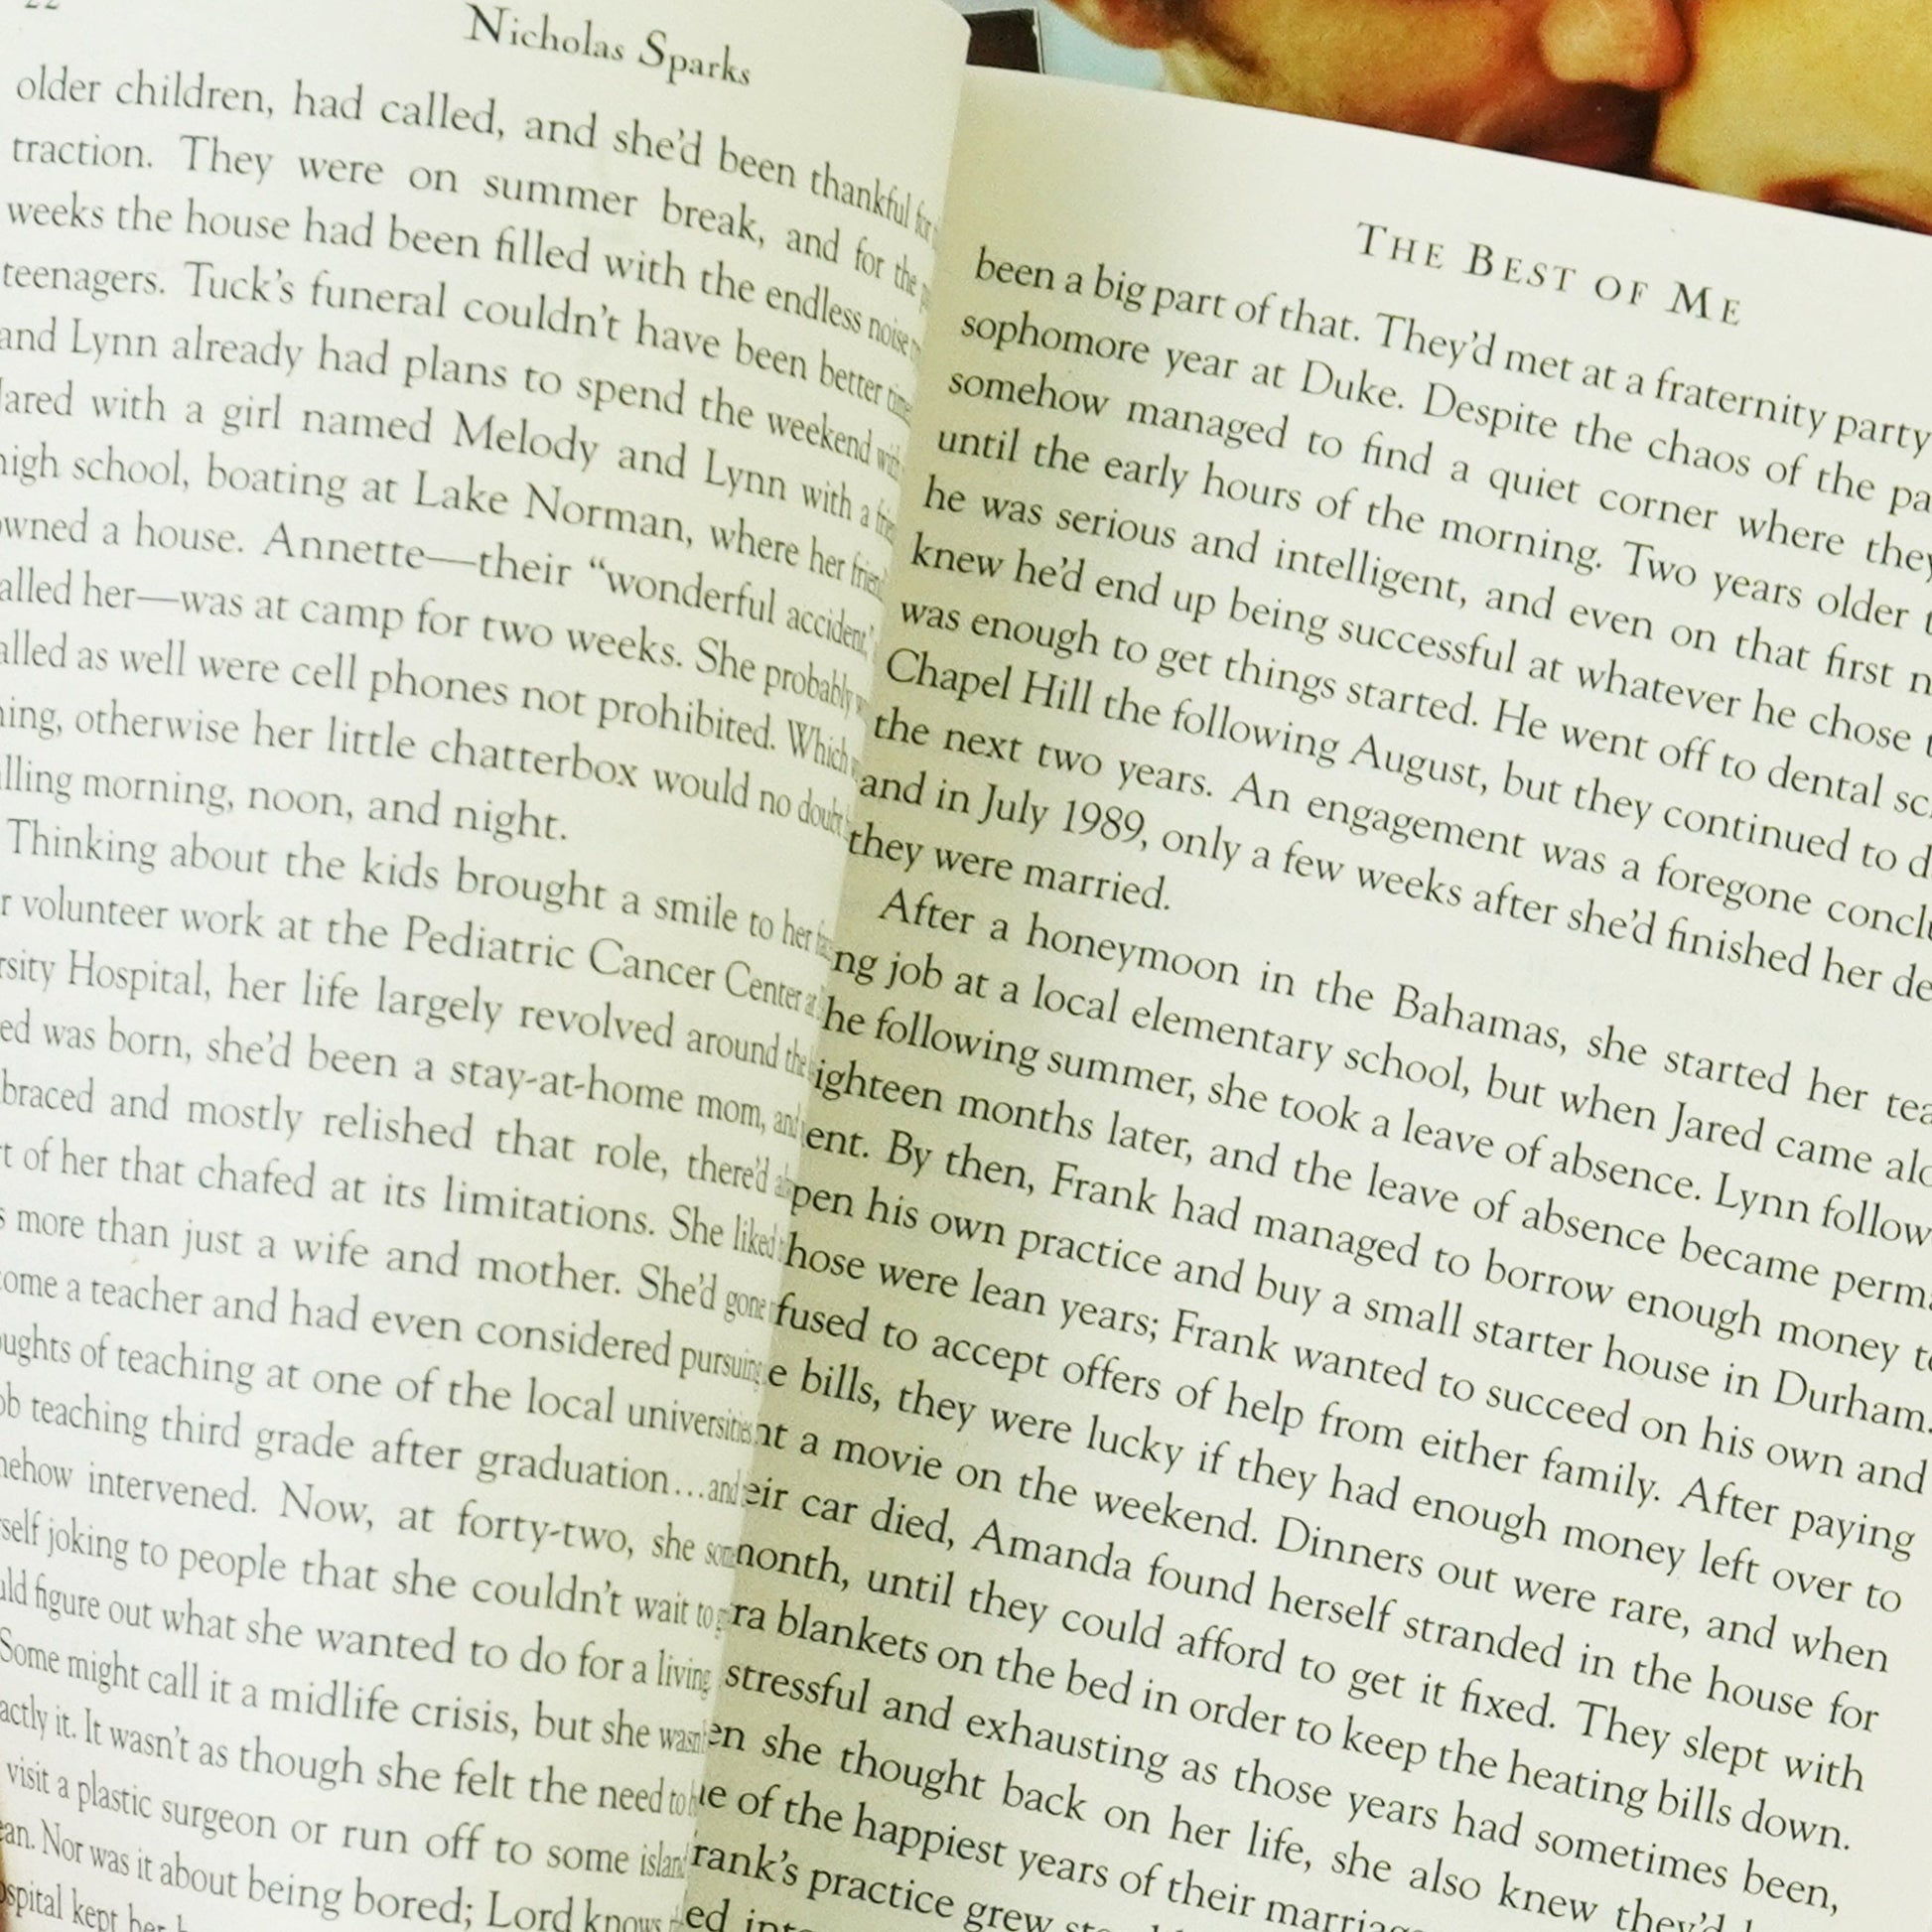 22
Nicholas Sparks
older children, had called, and she'd been thankful for
traction. They were on summer break, and for the
weeks the house had been filled with the endless noise
teenagers. Tuck's funeral couldn't have been better
and Lynn already had plans to spend the weekend with
Jared with a girl named Melody and Lynn with a
high school, boating at Lake Norman, where her
owned a house. Annette—their "wonderful accident,"
alled her—was at camp for two weeks. She probably
alled as well were cell phones not prohibited. Which
ing, otherwise her little chatterbox would no doubt
lling morning, noon, and night.
Thinking about the kids brought a smile to her
r volunteer work at the Pediatric Cancer Center at
rsity Hospital, her life largely revolved around the
ed was born, she'd been a stay-at-home mom, and
braced and mostly relished that role, there'd
t of her that chafed at its limitations. She liked
s more than just a wife and mother. She'd gone
come a teacher and had even considered pursuing
oughts of teaching at one of the local universities
ob teaching third grade after graduation…and
ehow intervened. Now, at forty-two, she
rself joking to people that she couldn't wait to
uld figure out what she wanted to do for a living.
Some might call it a midlife crisis, but she wasn't
actly it. It wasn't as though she felt the need to
visit a plastic surgeon or run off to some island
ean. Nor was it about being bored; Lord knows
ospital kept her
THE BEST OF ME
been a big part of that. They'd met at a fraternity party
sophomore year at Duke. Despite the chaos of the pa
somehow managed to find a quiet corner where they
until the early hours of the morning. Two years older
he was serious and intelligent, and even on that first n
knew he'd end up being successful at whatever he chose
was enough to get things started. He went off to dental sc
Chapel Hill the following August, but they continued to d
the next two years. An engagement was a foregone conclu
and in July 1989, only a few weeks after she'd finished her de
they were married.
After a honeymoon in the Bahamas, she started her tea
ng job at a local elementary school, but when Jared came alo
he following summer, she took a leave of absence. Lynn follow
ighteen months later, and the leave of absence became perma
ent. By then, Frank had managed to borrow enough money to
pen his own practice and buy a small starter house in Durham.
hose were lean years; Frank wanted to succeed on his own and
fused to accept offers of help from either family. After paying
e bills, they were lucky if they had enough money left over to
nt a movie on the weekend. Dinners out were rare, and when
eir car died, Amanda found herself stranded in the house for
month, until they could afford to get it fixed. They slept with
ra blankets on the bed in order to keep the heating bills down.
stressful and exhausting as those years had sometimes been,
en she thought back on her life, she also knew they'd
ne of the happiest years of their marriage
rank's practice grew
ed into